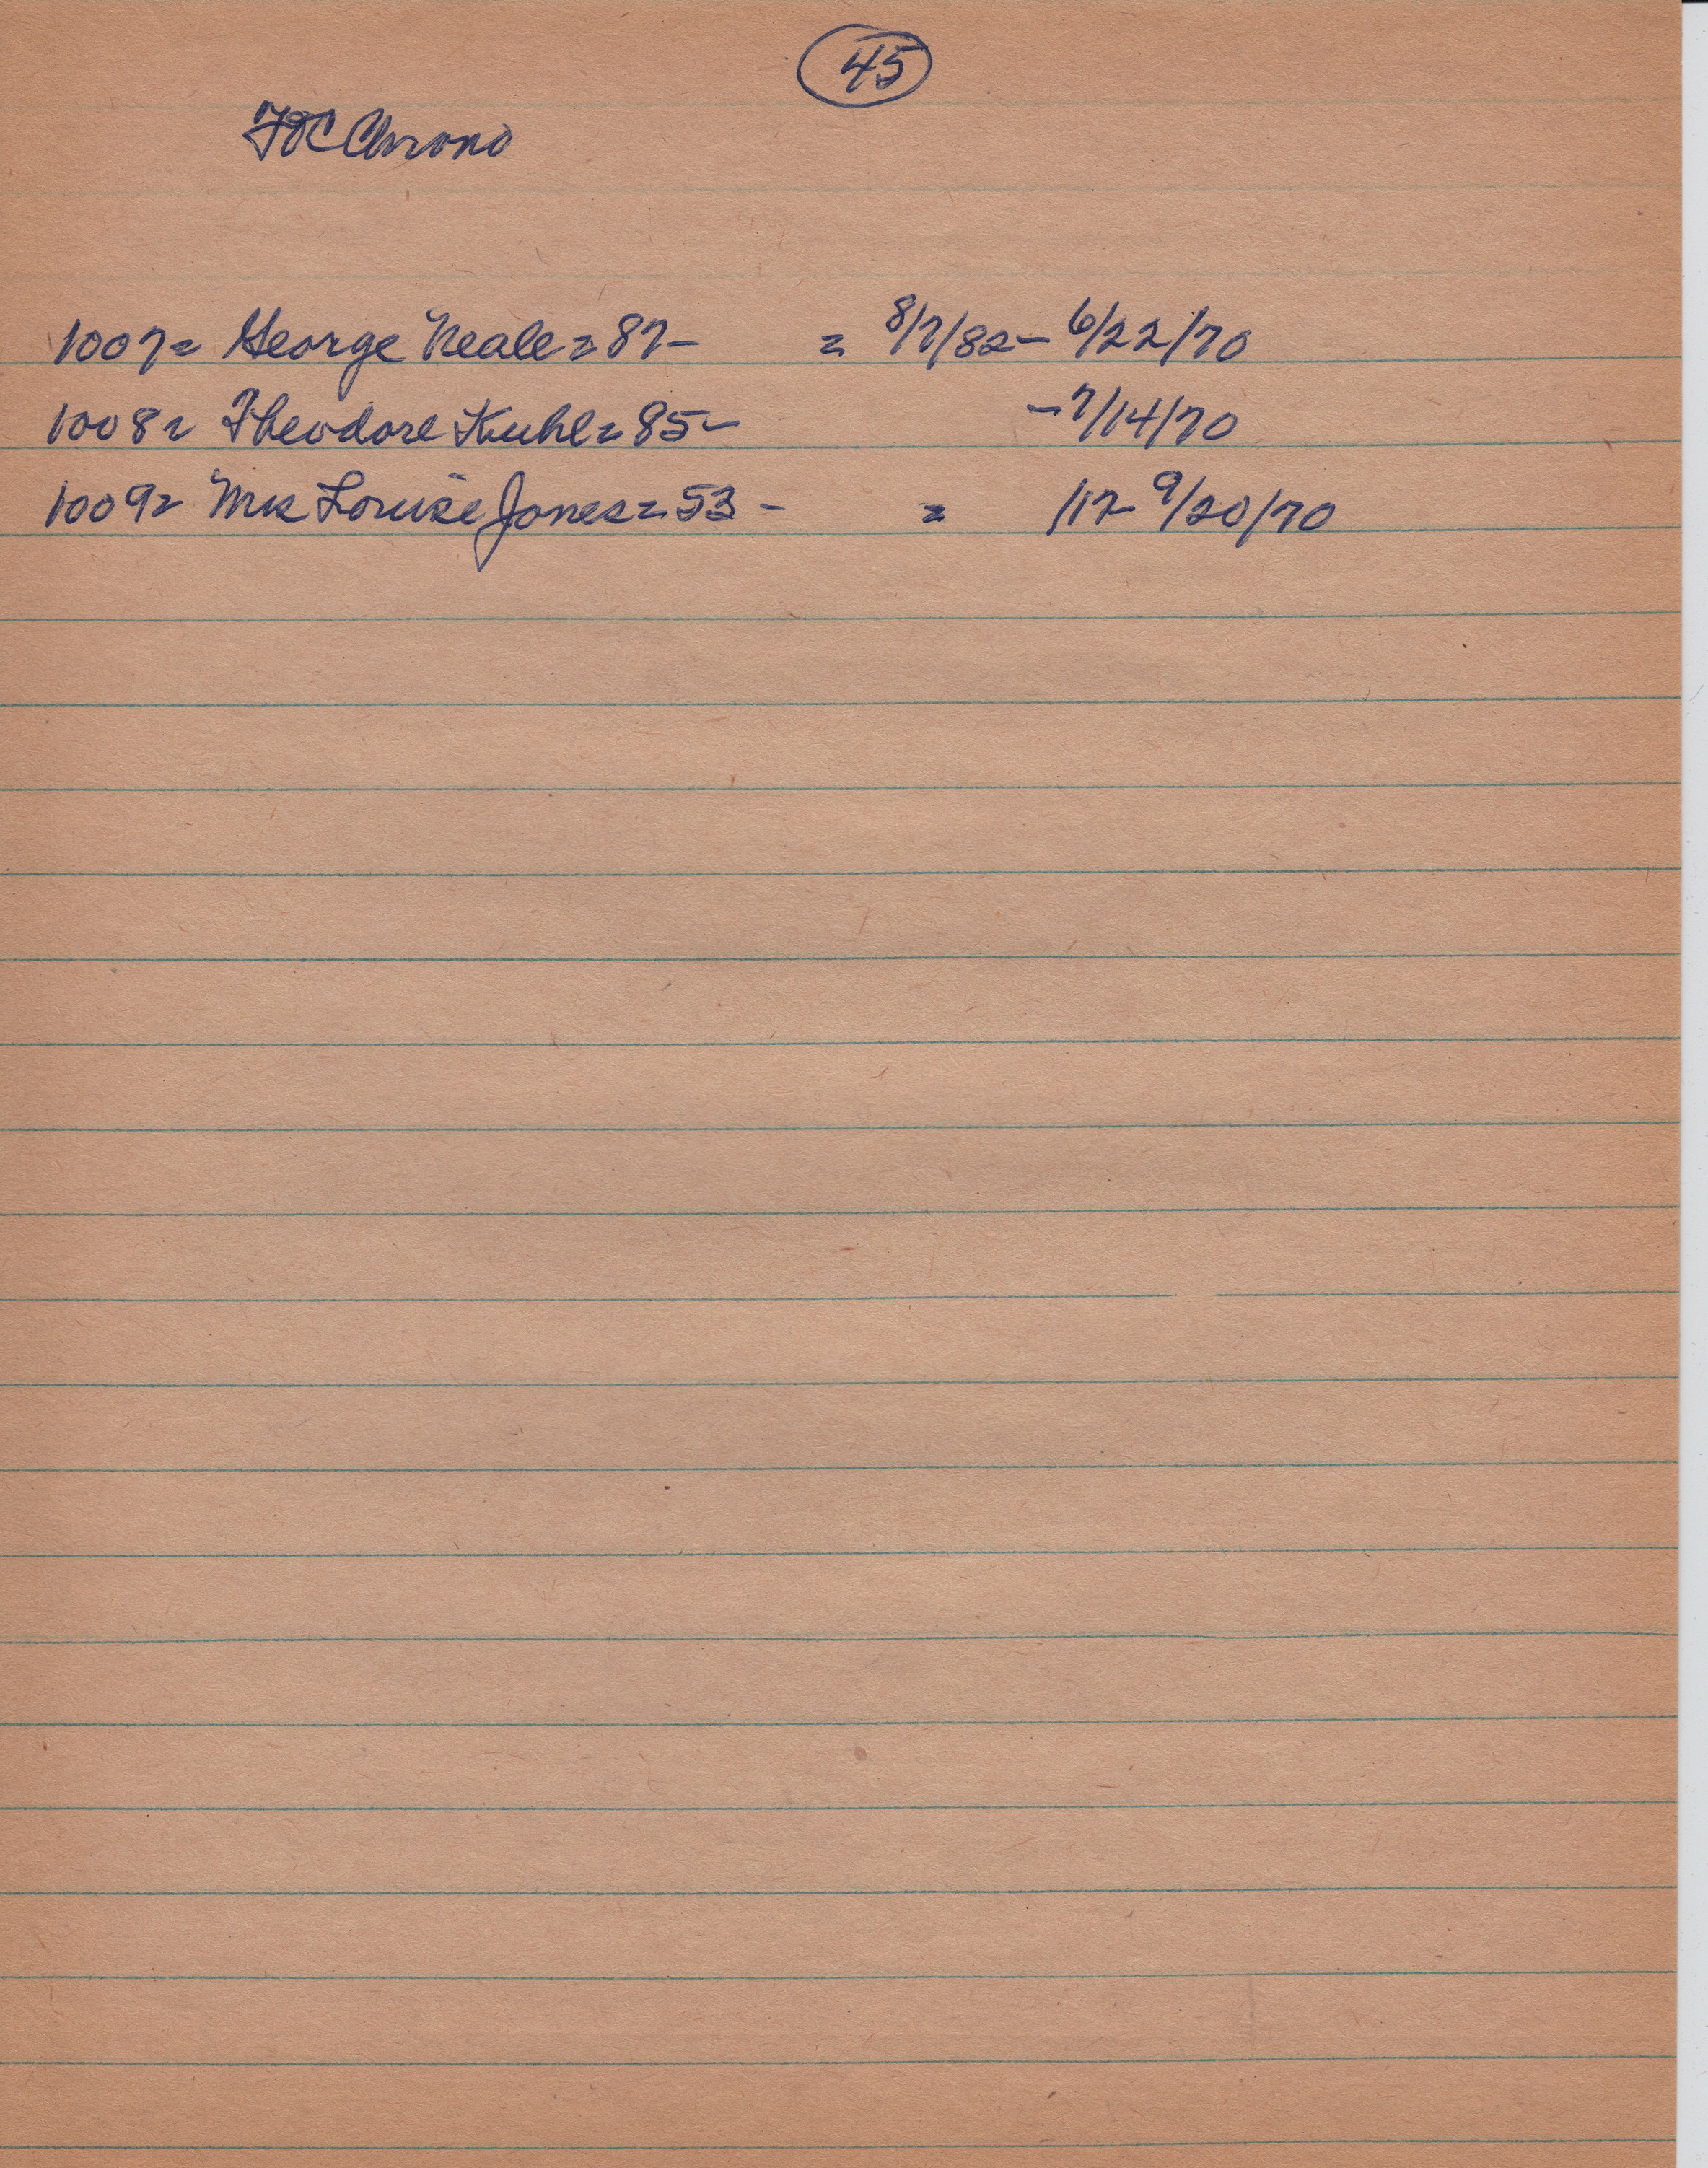 45
FOC Chrono
1007= George Neale=87- = 8/7/82- 6/22/70
1008= Theodore Kuhl=85- -7/14/70
1009= Mrs Louise Jones=53- = /17- 9/20/70